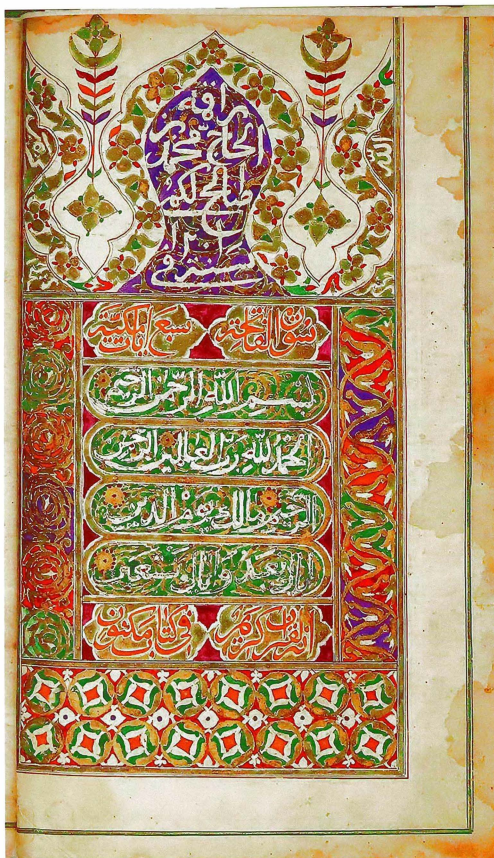 الحاج
محمد
صالح
الله
سورة الفاتحة سبع آيات مكية
بسم الله الرحمن الرحيم
الحمد لله رب العالمين الرحمن
الرحيم مالك يوم الدين
اياك نعبد واياك نستعين
انه لقرآن كريم في كتاب مكنون